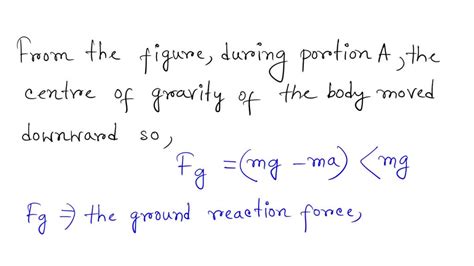 From the figure, during portion A, the
centre of gravity of the body moved
downward so,
Fg = (mg - ma) < mg
Fg ⇒ the ground reaction force,